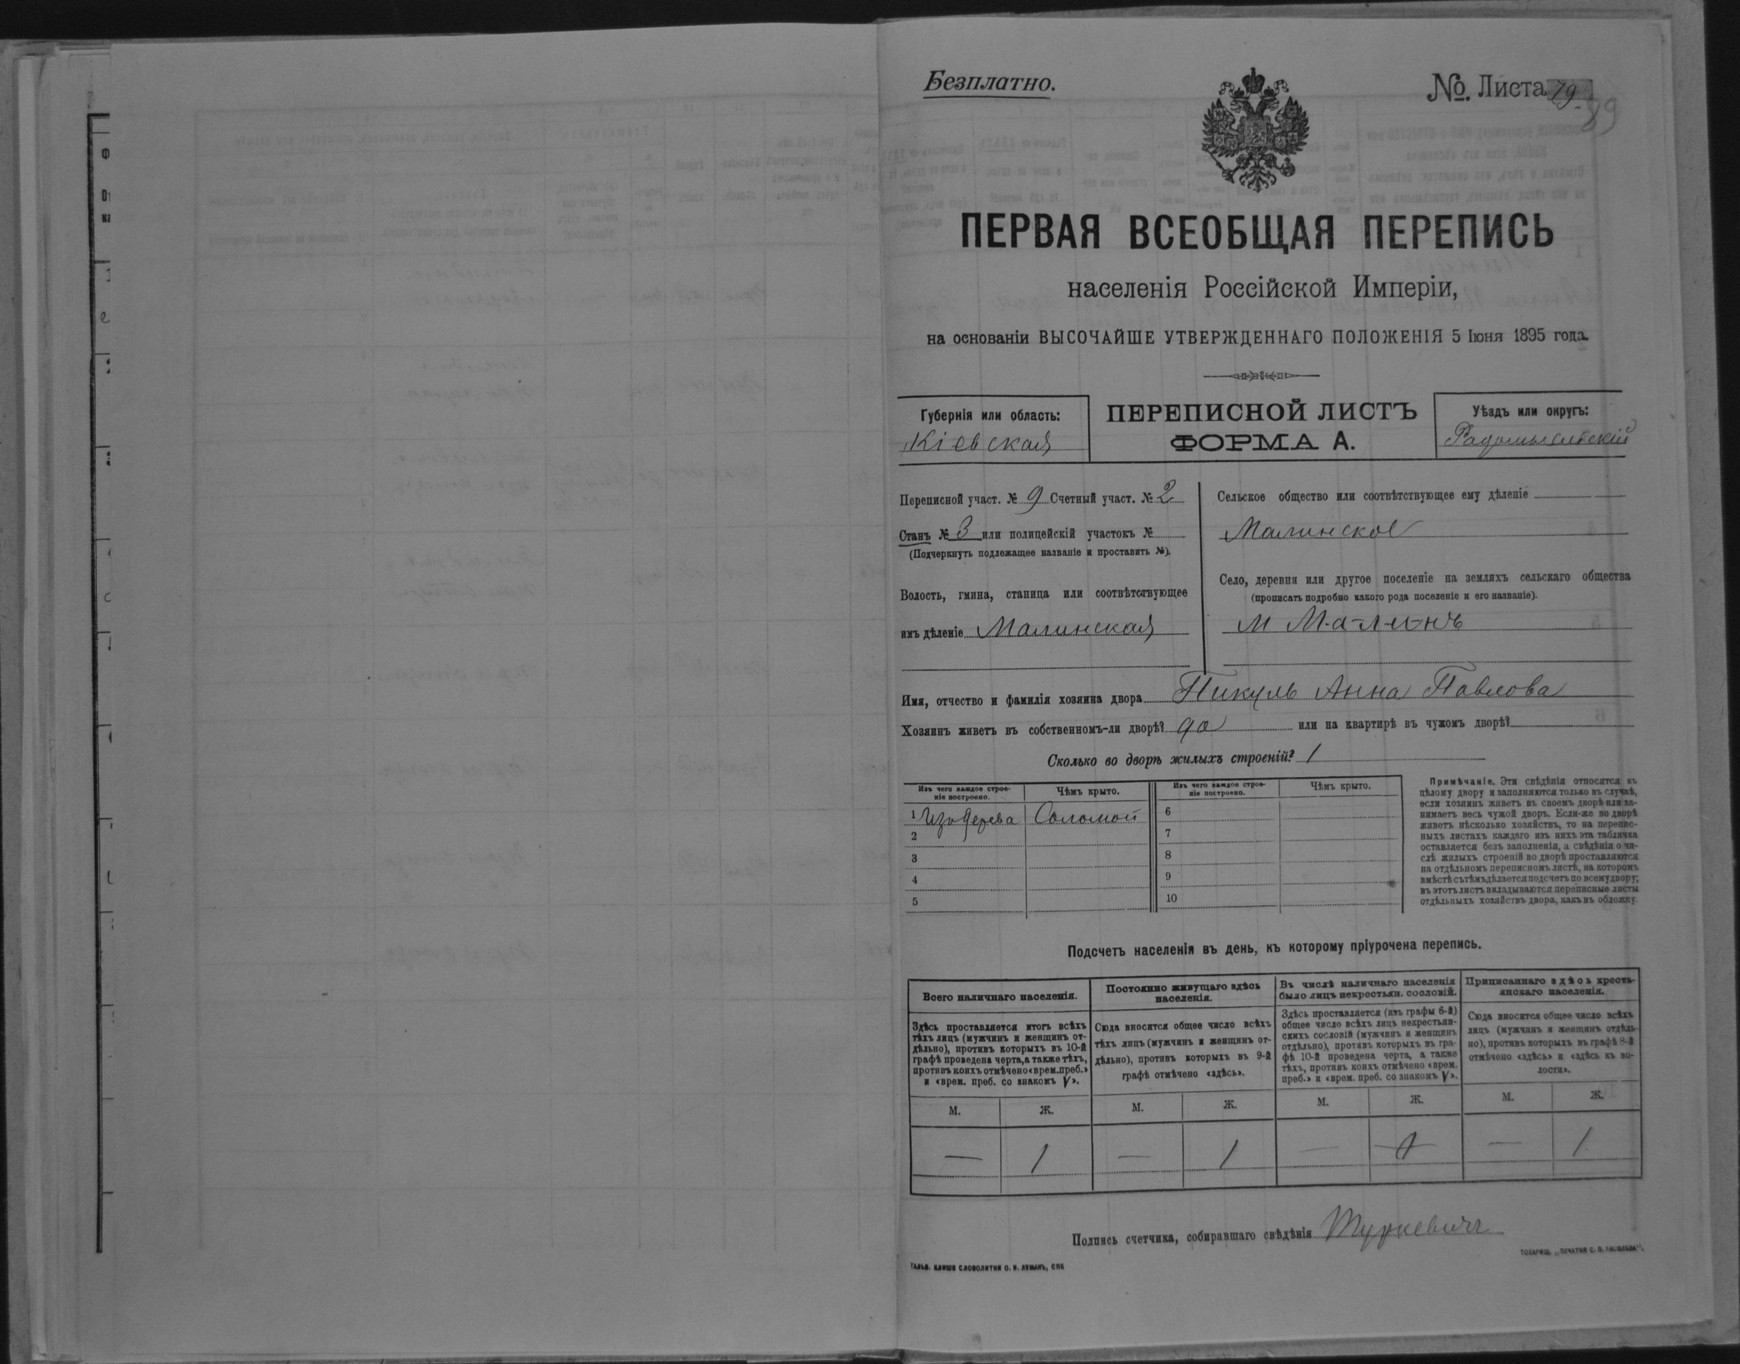 Безплатно.
№. Листа 79
89
ПЕРВАЯ ВСЕОБЩАЯ ПЕРЕПИСЬ
населенія Россійской Имперіи,
на основаніи ВЫСОЧАЙШЕ УТВЕРЖДЕННАГО ПОЛОЖЕНІЯ 5 Іюня 1895 года.
Губернія или область:
Кіевская
ПЕРЕПИСНОЙ ЛИСТЪ
ФОРМА А.
Уѣздъ или округъ:
Радомысльскій
Переписной участ. № 9 Счетный участ. № 2
Станъ № 3 или полицейскій участокъ №
(Подчеркнуть подлежащее названіе и проставить №).
Волость, гмина, станица или соотвѣтствующее
имъ дѣленіе Малинская
Сельское общество или соотвѣтствующее ему дѣленіе
Малинское
Село, деревня или другое поселеніе на земляхъ сельскаго общества
(прописать подробно какого рода поселеніе и его названіе).
М Малинъ
Имя, отчество и фамилія хозяина двора Пикуль Анна Павлова
Хозяинъ живетъ въ собственномъ-ли дворѣ? да или на квартирѣ въ чужомъ дворѣ?
Сколько во дворѣ жилыхъ строеній? 1
Изъ чего каждое строе-
ніе построено.
Чѣмъ крыто.
Изъ чего каждое строе-
ніе построено.
Чѣмъ крыто.
1 Изъ дерева Соломой
2
3
4
5
6
7
8
9
10
Примѣчаніе. Эти свѣдѣнія относятся къ
цѣлому двору и заполняются только въ случаѣ,
если хозяинъ живетъ въ своемъ дворѣ или за-
нимаетъ весь чужой дворъ. Если-же во дворѣ
живетъ нѣсколько хозяйствъ, то на перепис-
ныхъ листахъ каждаго изъ нихъ эта табличка
оставляется безъ заполненія, а свѣдѣнія о чи-
слѣ жилыхъ строеній во дворѣ проставляются
на отдѣльномъ переписномъ листѣ, на которомъ
вмѣстѣ съ тѣмъ дѣлается подсчетъ по всему двору;
въ этотъ листъ вкладываются переписные листы
отдѣльныхъ хозяйствъ двора, какъ въ обложку.
Подсчетъ населенія въ день, къ которому пріурочена перепись.
Всего наличнаго населенія.
Здѣсь проставляется итогъ всѣхъ
тѣхъ лицъ (мужчинъ и женщинъ от-
дѣльно), противъ которыхъ въ 10-й
графѣ проведена черта, а также тѣхъ,
противъ коихъ отмѣчено «врем. преб.»
и «врем. преб. со знакомъ V».
Постоянно живущаго здѣсь
населенія.
Сюда вносится общее число всѣхъ
тѣхъ лицъ (мужчинъ и женщинъ от-
дѣльно), противъ которыхъ въ 9-й
графѣ отмѣчено «здѣсь».
Въ числѣ наличнаго населенія
было лицъ некрестьян. сословій.
Здѣсь проставляется (изъ графы 6-й)
общее число всѣхъ лицъ некрестьян-
скихъ сословій (мужчинъ и женщинъ
отдѣльно), противъ которыхъ въ гра-
фѣ 10-й проведена черта, а также
тѣхъ, противъ коихъ отмѣчено «врем.
преб.» и «врем. преб. со знакомъ V».
Приписаннаго здѣсь кресть-
янскаго населенія.
Сюда вносится общее число всѣхъ
лицъ (мужчинъ и женщинъ отдѣль-
но), противъ которыхъ въ графѣ 8-й
отмѣчено «здѣсь» и «здѣсь къ во-
лости».
М. Ж. М. Ж. М. Ж. М. Ж.
— 1 — 1 — — 1
Подпись счетчика, собиравшаго свѣдѣнія
ГАЛЬВ. КЛИШЕ СЛОВОЛИТНИ О. И. ЛЕМАНЪ, СПБ
ТОВАРИЩ. „ПЕЧАТНЯ С. П. ЯКОВЛЕВА“.